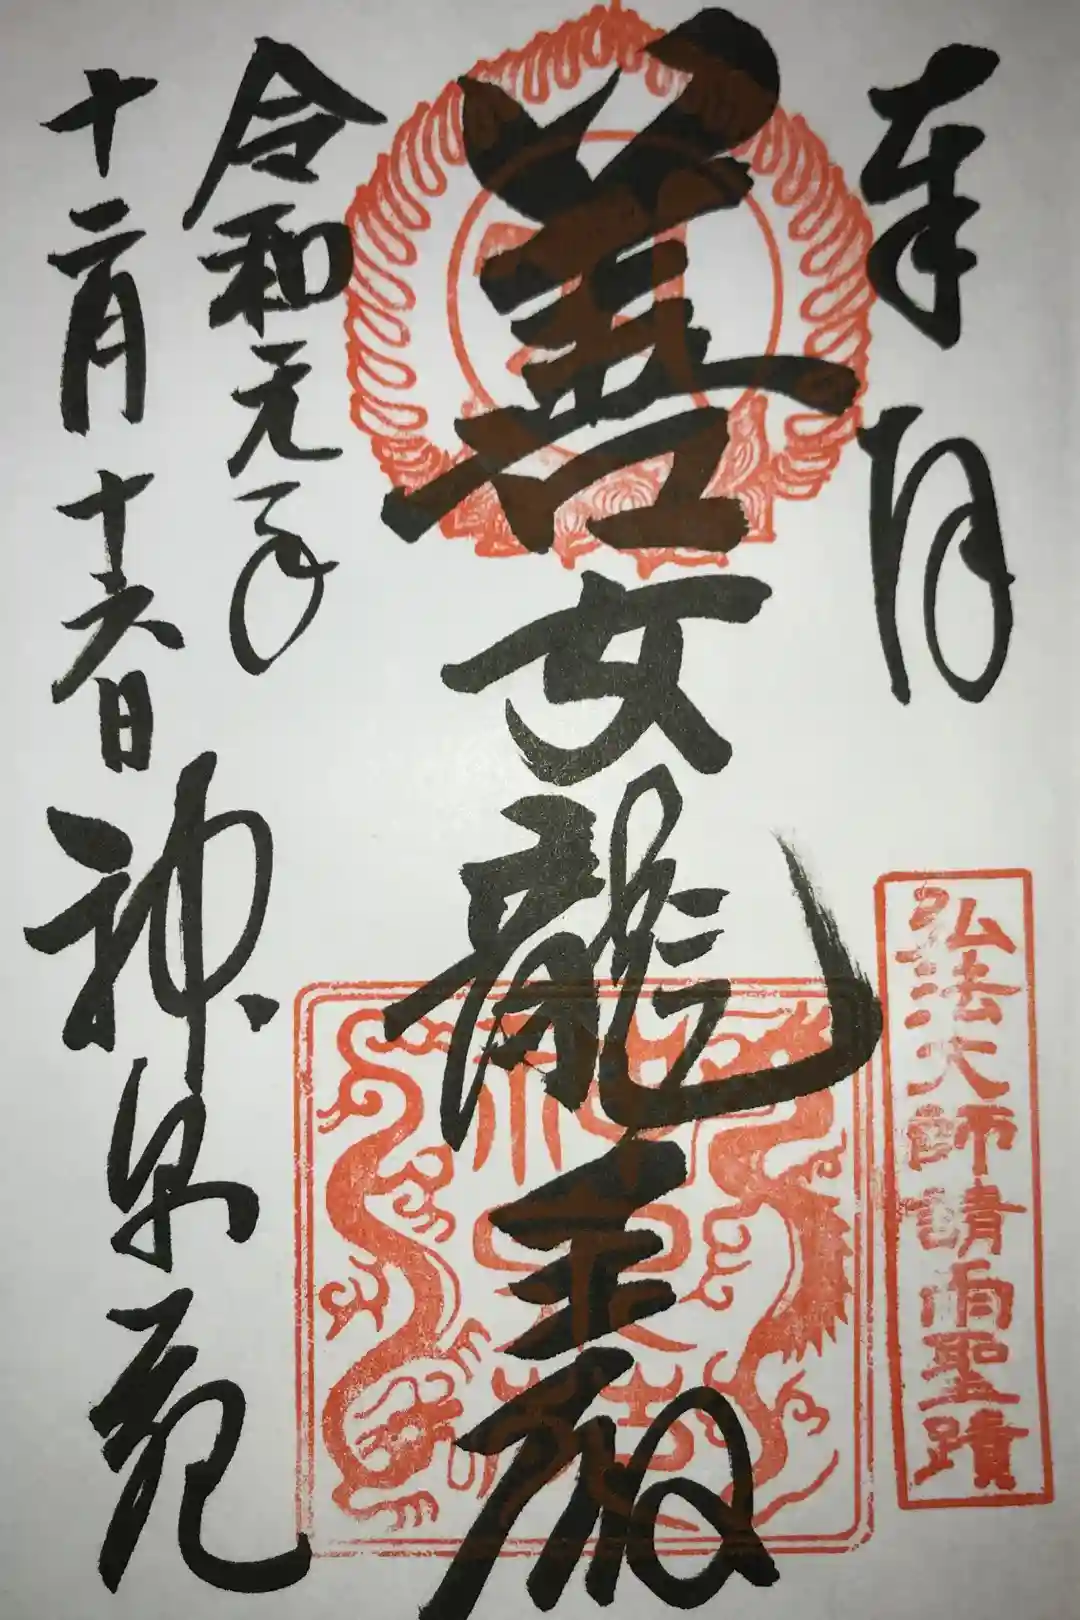 奉拝
弘法大師請雨聖蹟
善女龍王殿
神泉苑
令和元年
十二月十六日
神泉苑